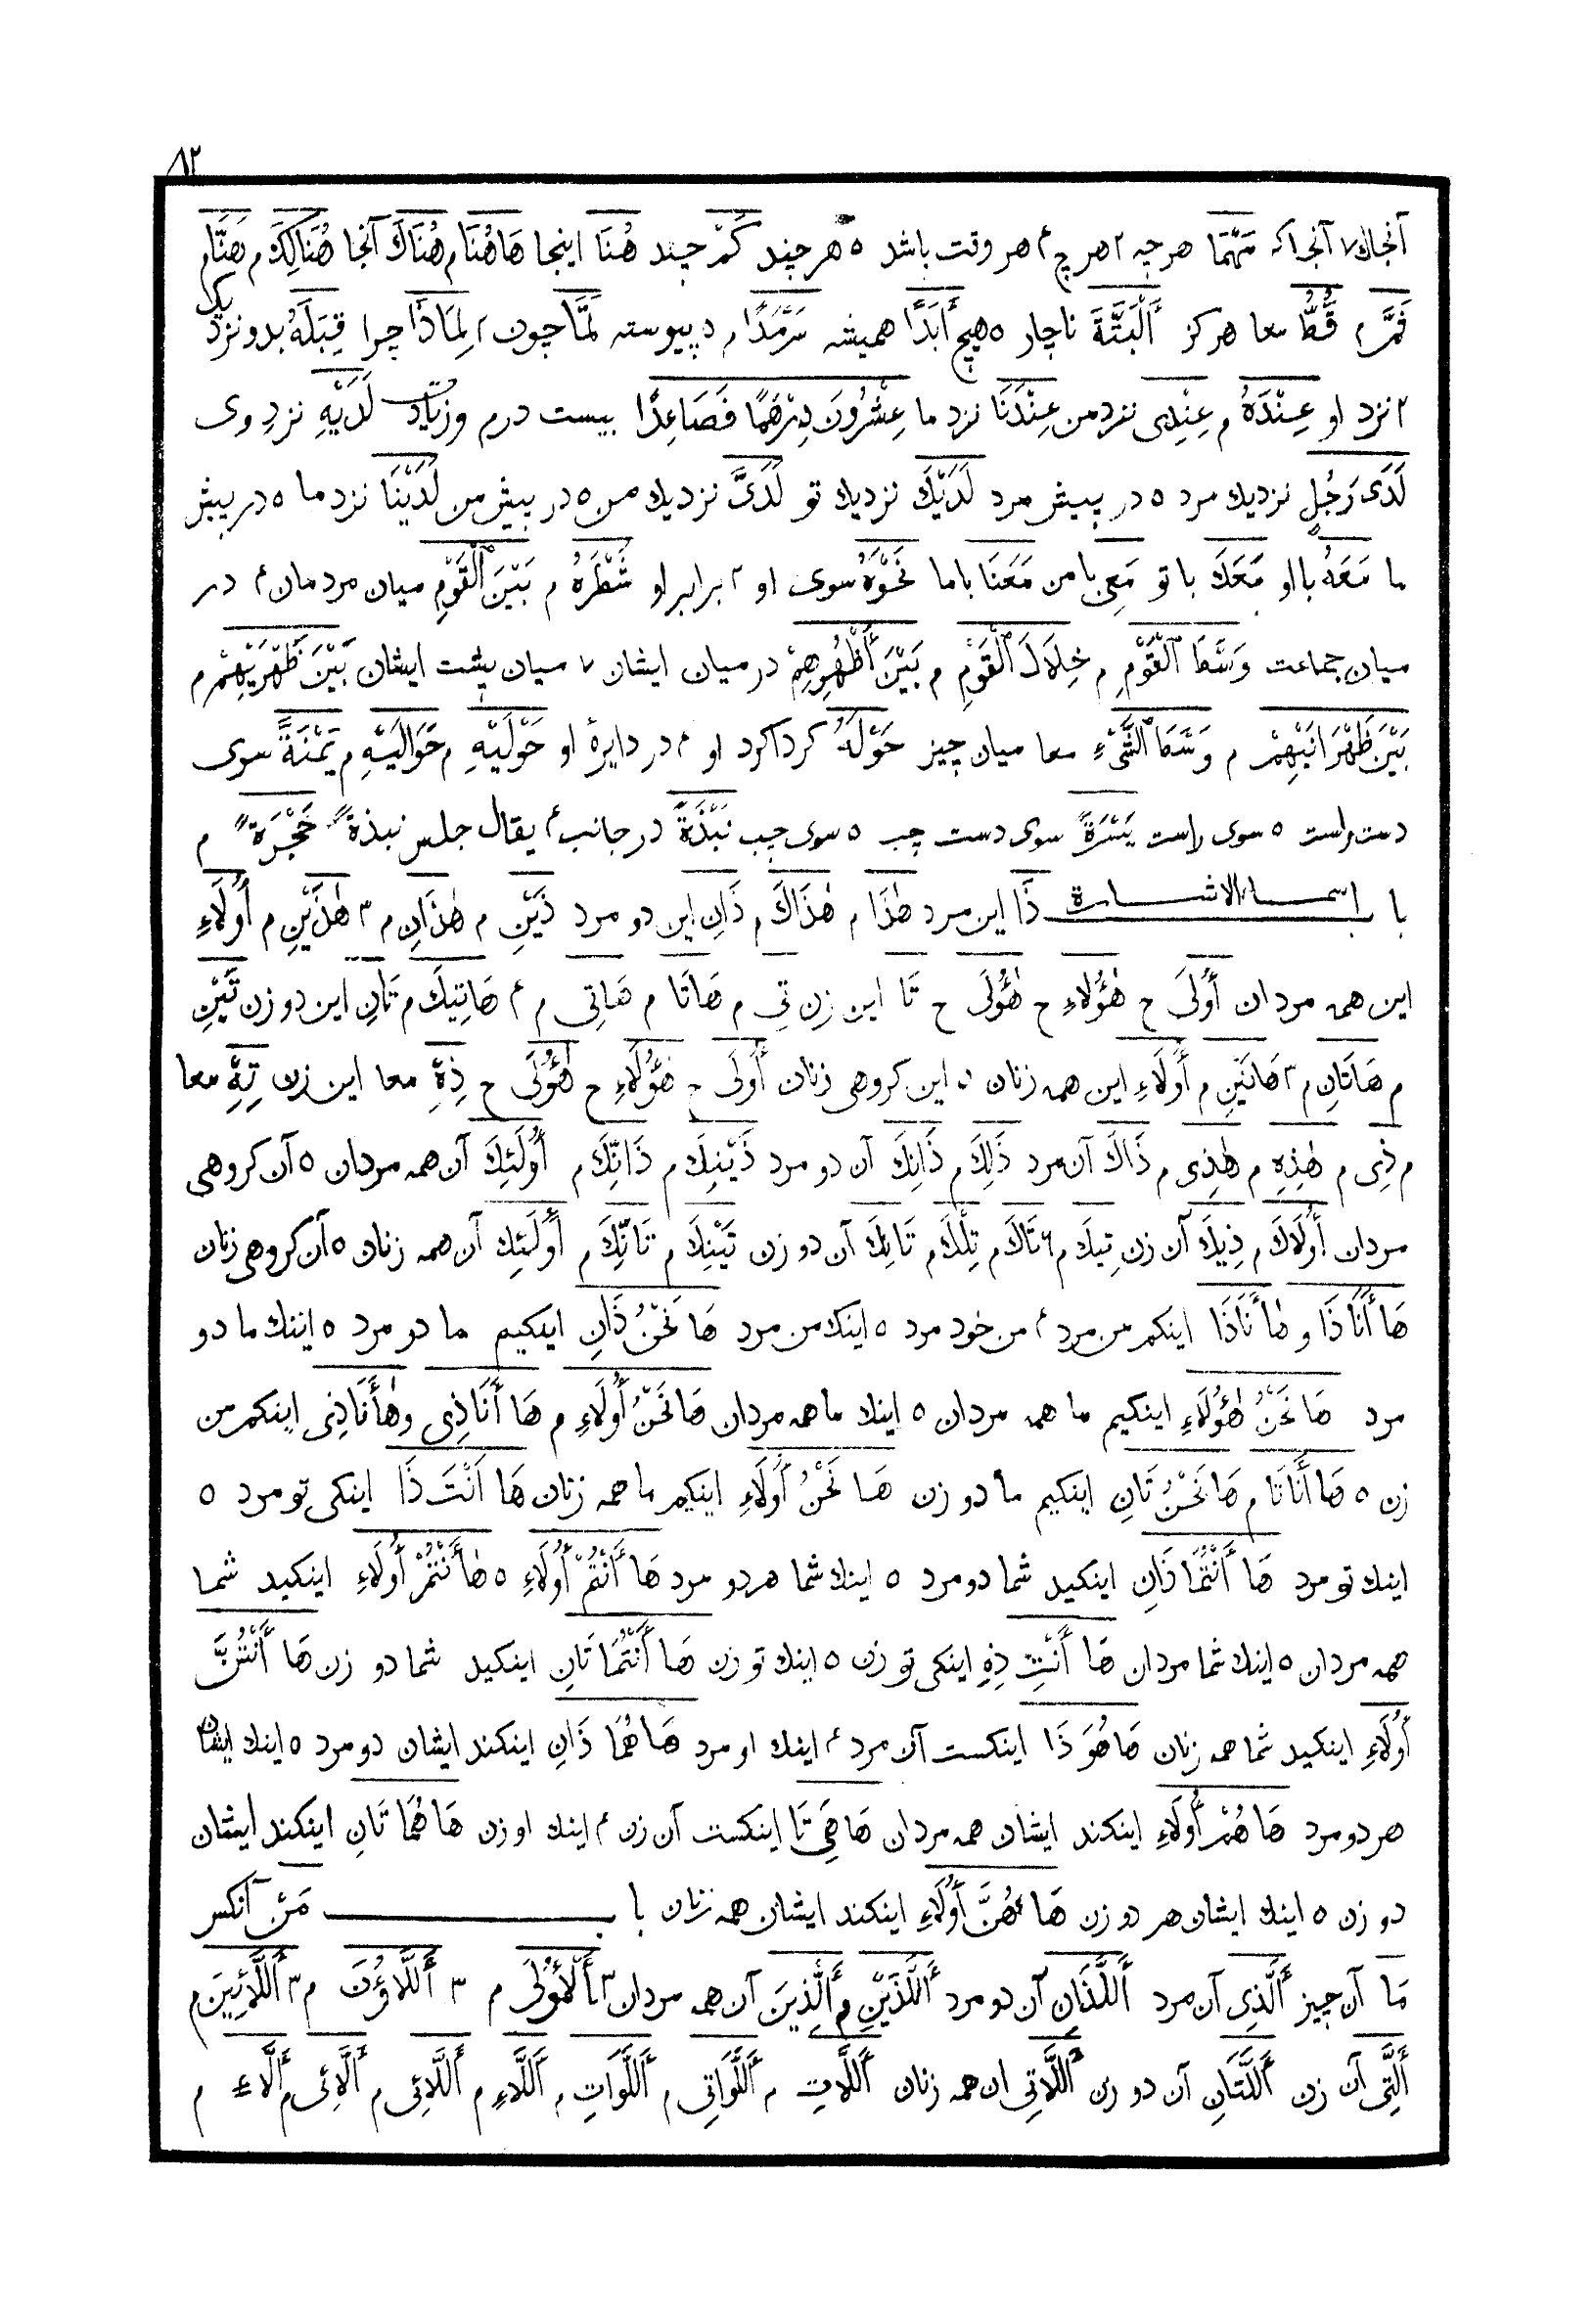 ٨٢
آنجاك ٧ آنجا كه مَهْمَا هرچه ٢ هرچ ۴ هر وقت باشد ٥ هرچند كَمْ چند هُنَا اینجا هَاهُنَا م هُنَاكَ آنجا هُنَالِكَ م هَنَّا م
ثَمَّ م قَطُّ معا هركز أَلْبَتَّةَ ناچار ٥ هیچ أَبَدًا همیشه سَرْمَدًا م د پیوسته لَمَّا چون ٢ لِمَاذَا چرا قِبَلَهُ بدو نزدیك
٢ نزد او عِنْدَهُ م عِنْدِی نزد من عِنْدَنَا نزد ما عِشْرُونَ دِرْهَمًا فَصَاعِدًا بیست درم وزیادت لَدَیْهِ نزدِ وی
لَدَی رَجُلٍ نزدیك مرد ٥ در پیش مرد لَدَیْكَ نزدیك تو لَدَیَّ نزدیك من ٥ در پیش من لَدَیْنَا نزد ما ٥ در پیش
ما مَعَهُ با او مَعَكَ با تو مَعِی با من مَعَنَا با ما نَحْوَهُ سوی او ٢ برابر او شَطْرَهُ م بَیْنَ ٱلْقَوْمِ میان مردمان ۴ در
میان جماعت وَسْطَ ٱلْقَوْمِ م خِلَالَ ٱلْقَوْمِ م بَیْنَ أَظْهُرِهِمْ در میان ایشان ٧ میان پشت ایشان بَیْنَ ظَهْرَیْهِمْ م
بَیْنَ ظَهْرَانَیْهِمْ م وَسْطَ ٱلشَّیْءِ معا میان چیز حَوْلَهُ كرداكرد او ۴ در دایرهٔ او حَوْلَیْهِ م حَوَالَیْهِ م یَمْنَةً سوی
دست راست ٥ سوی راست یَسْرَةً سوی دست چپ ٥ سوی چپ نَبْذَةً در جانب ۴ یقال جلس نبذةً حَجْرَةً م
باب اسماء الاشارة ذَا این مرد هٰذَا م هٰذَاكَ م ذَانِ این دو مرد ذَیْنِ م هٰذَانِ م ٣ هٰذَیْنِ م أُولَاءِ
این همه مردان أُولَی ح هٰؤُلَاءِ ح هٰؤُلَی ح تَا این زن تِی م هَاتَا م هَاتِی م ۴ هَاتِیكَ م تَانِ این دو زن تَیْنِ
م هَاتَانِ م ٣ هَاتَیْنِ م أُولَاءِ این همه زنان ٥ این كروهی زنان أُولَی ح هٰؤُلَاءِ ح هٰؤُلَی ح ذِهِ معا این زن تِهِ معا
م ذِی م هٰذِهِ م هٰذِی م ذَاكَ آن مرد ذٰلِكَ م ذَانِكَ آن دو مرد ذَیْنِكَ م ذَانِّكَ م أُولَئِكَ آن همه مردان ٥ آن كروهی
مردان أُولَاكَ م ذِیكَ آن زن تِیكَ م ٦ تَاكَ م تِلْكَ م تَانِكَ آن دو زن تَیْنِكَ م تَانِّكَ م أُولَئِكَ آن همه زنان ٥ آن كروهی زنان
هَا أَنَا ذَا و هٰأَنَذَا اینكم من مرد ۴ من خود مرد ٥ اینك من مرد هَا نَحْنُ ذَانِ اینكیم ما دو مرد ٥ اینك ما دو
مرد هَا نَحْنُ هٰؤُلَاءِ اینكیم ما همه مردان ٥ اینك ما همه مردان هَا نَحْنُ أُولَاءِ م هَا أَنَا ذِی وهٰأَنَاذِی اینكم من
زن ٥ هَا أَنَا تَا م هَا نَحْنُ تَانِ اینكیم ما دو زن هَا نَحْنُ أُولَاءِ اینكیم ما همه زنان هَا أَنْتَ ذَا اینكی تو مرد ٥
اینك تو مرد هَا أَنْتُمَا ذَانِ اینكید شما دو مرد ٥ اینك شما هر دو مرد هَا أَنْتُمْ أُولَاءِ ٥ هٰأَنْتُمْ أُولَاءِ اینكید شما
همه مردان ٥ اینك شما مردان هَا أَنْتِ ذِهِ اینكی تو زن ٥ اینك تو زن هَا أَنْتُمَا تَانِ اینكید شما دو زن هَا أَنْتُنَّ
أُولَاءِ اینكید شما همه زنان هَا هُوَ ذَا اینكست آن مرد ۴ اینك او مرد هَا هُمَا ذَانِ اینكند ایشان دو مرد ٥ اینك ایشان
هر دو مرد هَا هُمْ أُولَاءِ اینكند ایشان همه مردان هَا هِیَ تَا اینكست آن زن ۴ اینك او زن هَا هُمَا تَانِ اینكند ایشان
دو زن ٥ اینك ایشان هر دو زن هَا هُنَّ أُولَاءِ اینكند ایشان همه زنان باب مَنْ آنكس
مَا آن چیز أَلَّذِی آن مرد أَللَّذَانِ آن دو مرد أَللَّذَیْنِ م أَلَّذِینَ آن همه مردان ٣ أَلْأُولَی م ٣ أَللَّاؤُنَ م ٣ أَللَّائِینَ م
أَلَّتِی آن زن أَللَّتَانِ آن دو زن أَللَّاتِی ان همه زنان أَللَّاتِ م أَللَّوَاتِی م أَللَّوَاتِ م أَللَّاءِ م أَللَّائِی م أَلَّائِی م أَلَّاءِ م